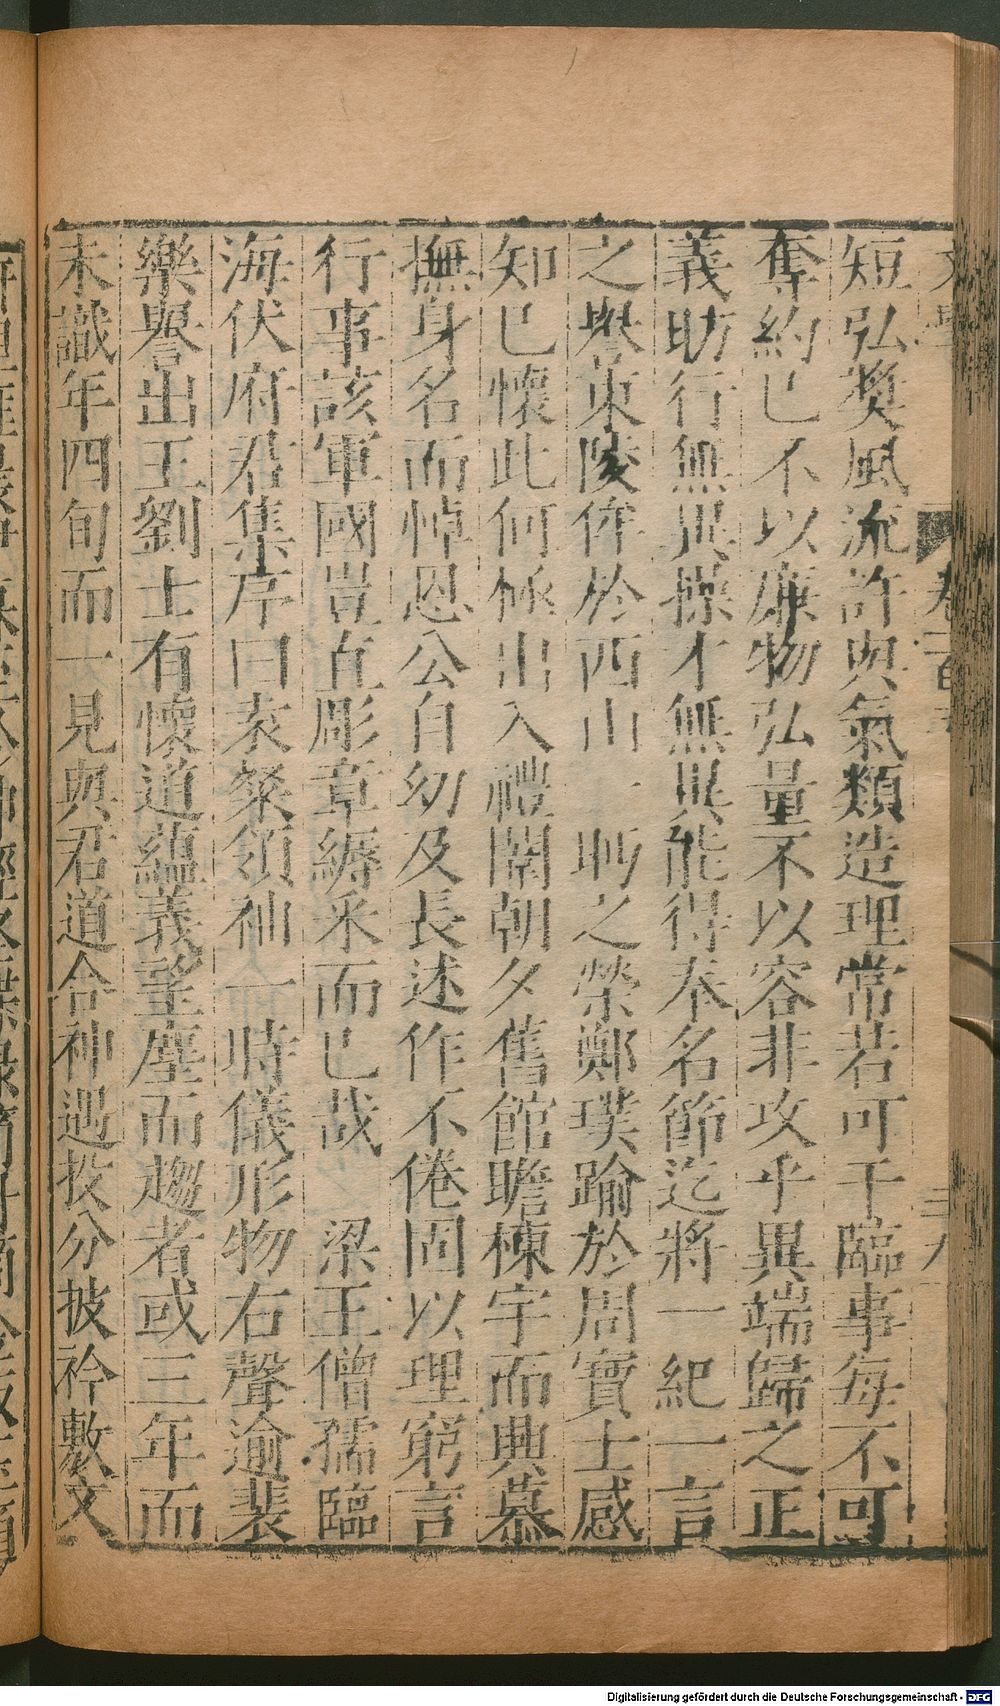 短弘獎風流許與氣類造理常若可干臨事每不可
奪約已不以廉物弘量不以容非攻乎異端歸之正
義昉行無異操才無異能得奉名節迄將一紀一言
之譽東陵侔於西山一眄之榮鄭璞踰於周寶士感
知已懷此何極出入禮闈朝夕舊館瞻棟宇而興慕
撫身名而悼恩公自幼及長述作不倦固以理窮言
行事該軍國豈直彫章縟采而已哉　梁王僧孺臨
海伏府君集序曰袁粲領袖一時儀形物右聲逾裴
樂譽出王劉士有懷道蘊義望塵而趨者或三年而
未識年四旬而一見與君道合神遇投分披衿敷文
Digitalisierung gefördert durch die Deutsche Forschungsgemeinschaft - DFG